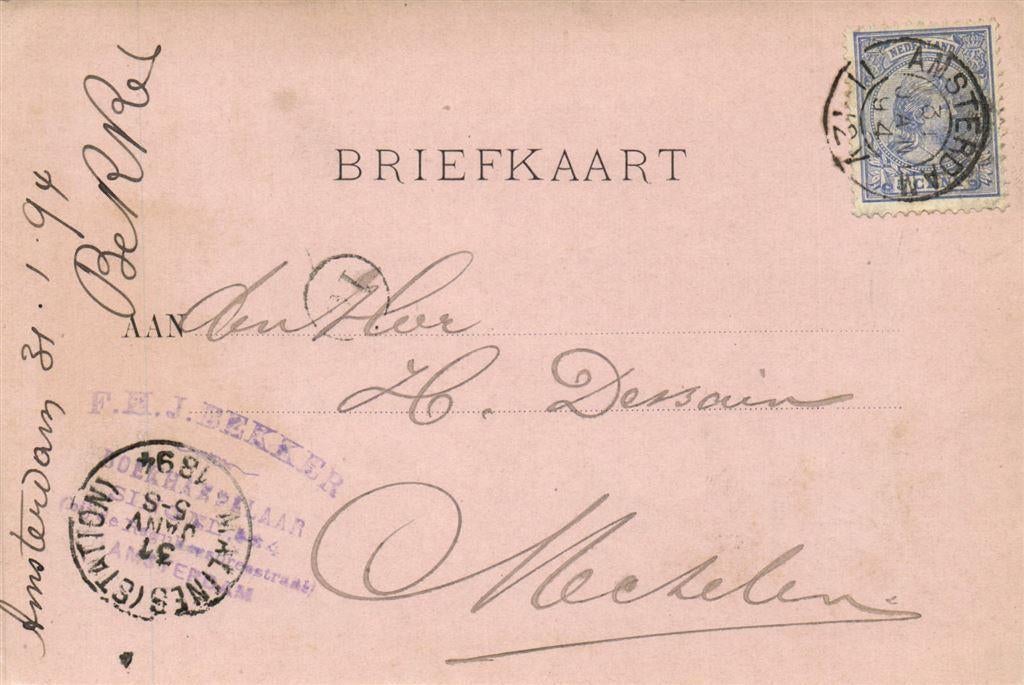 BRIEFKAART
NEDERLAND
AMSTERDAM
JAN
94
AAN den Heer
H. Dessain
Mechelen
Amsterdam 31.1.94
Bekker
F.H.J. BEKKER
BOEKHANDELAAR
AMSTERDAM
MALINES (STATION)
31
JANV
5-S
1894